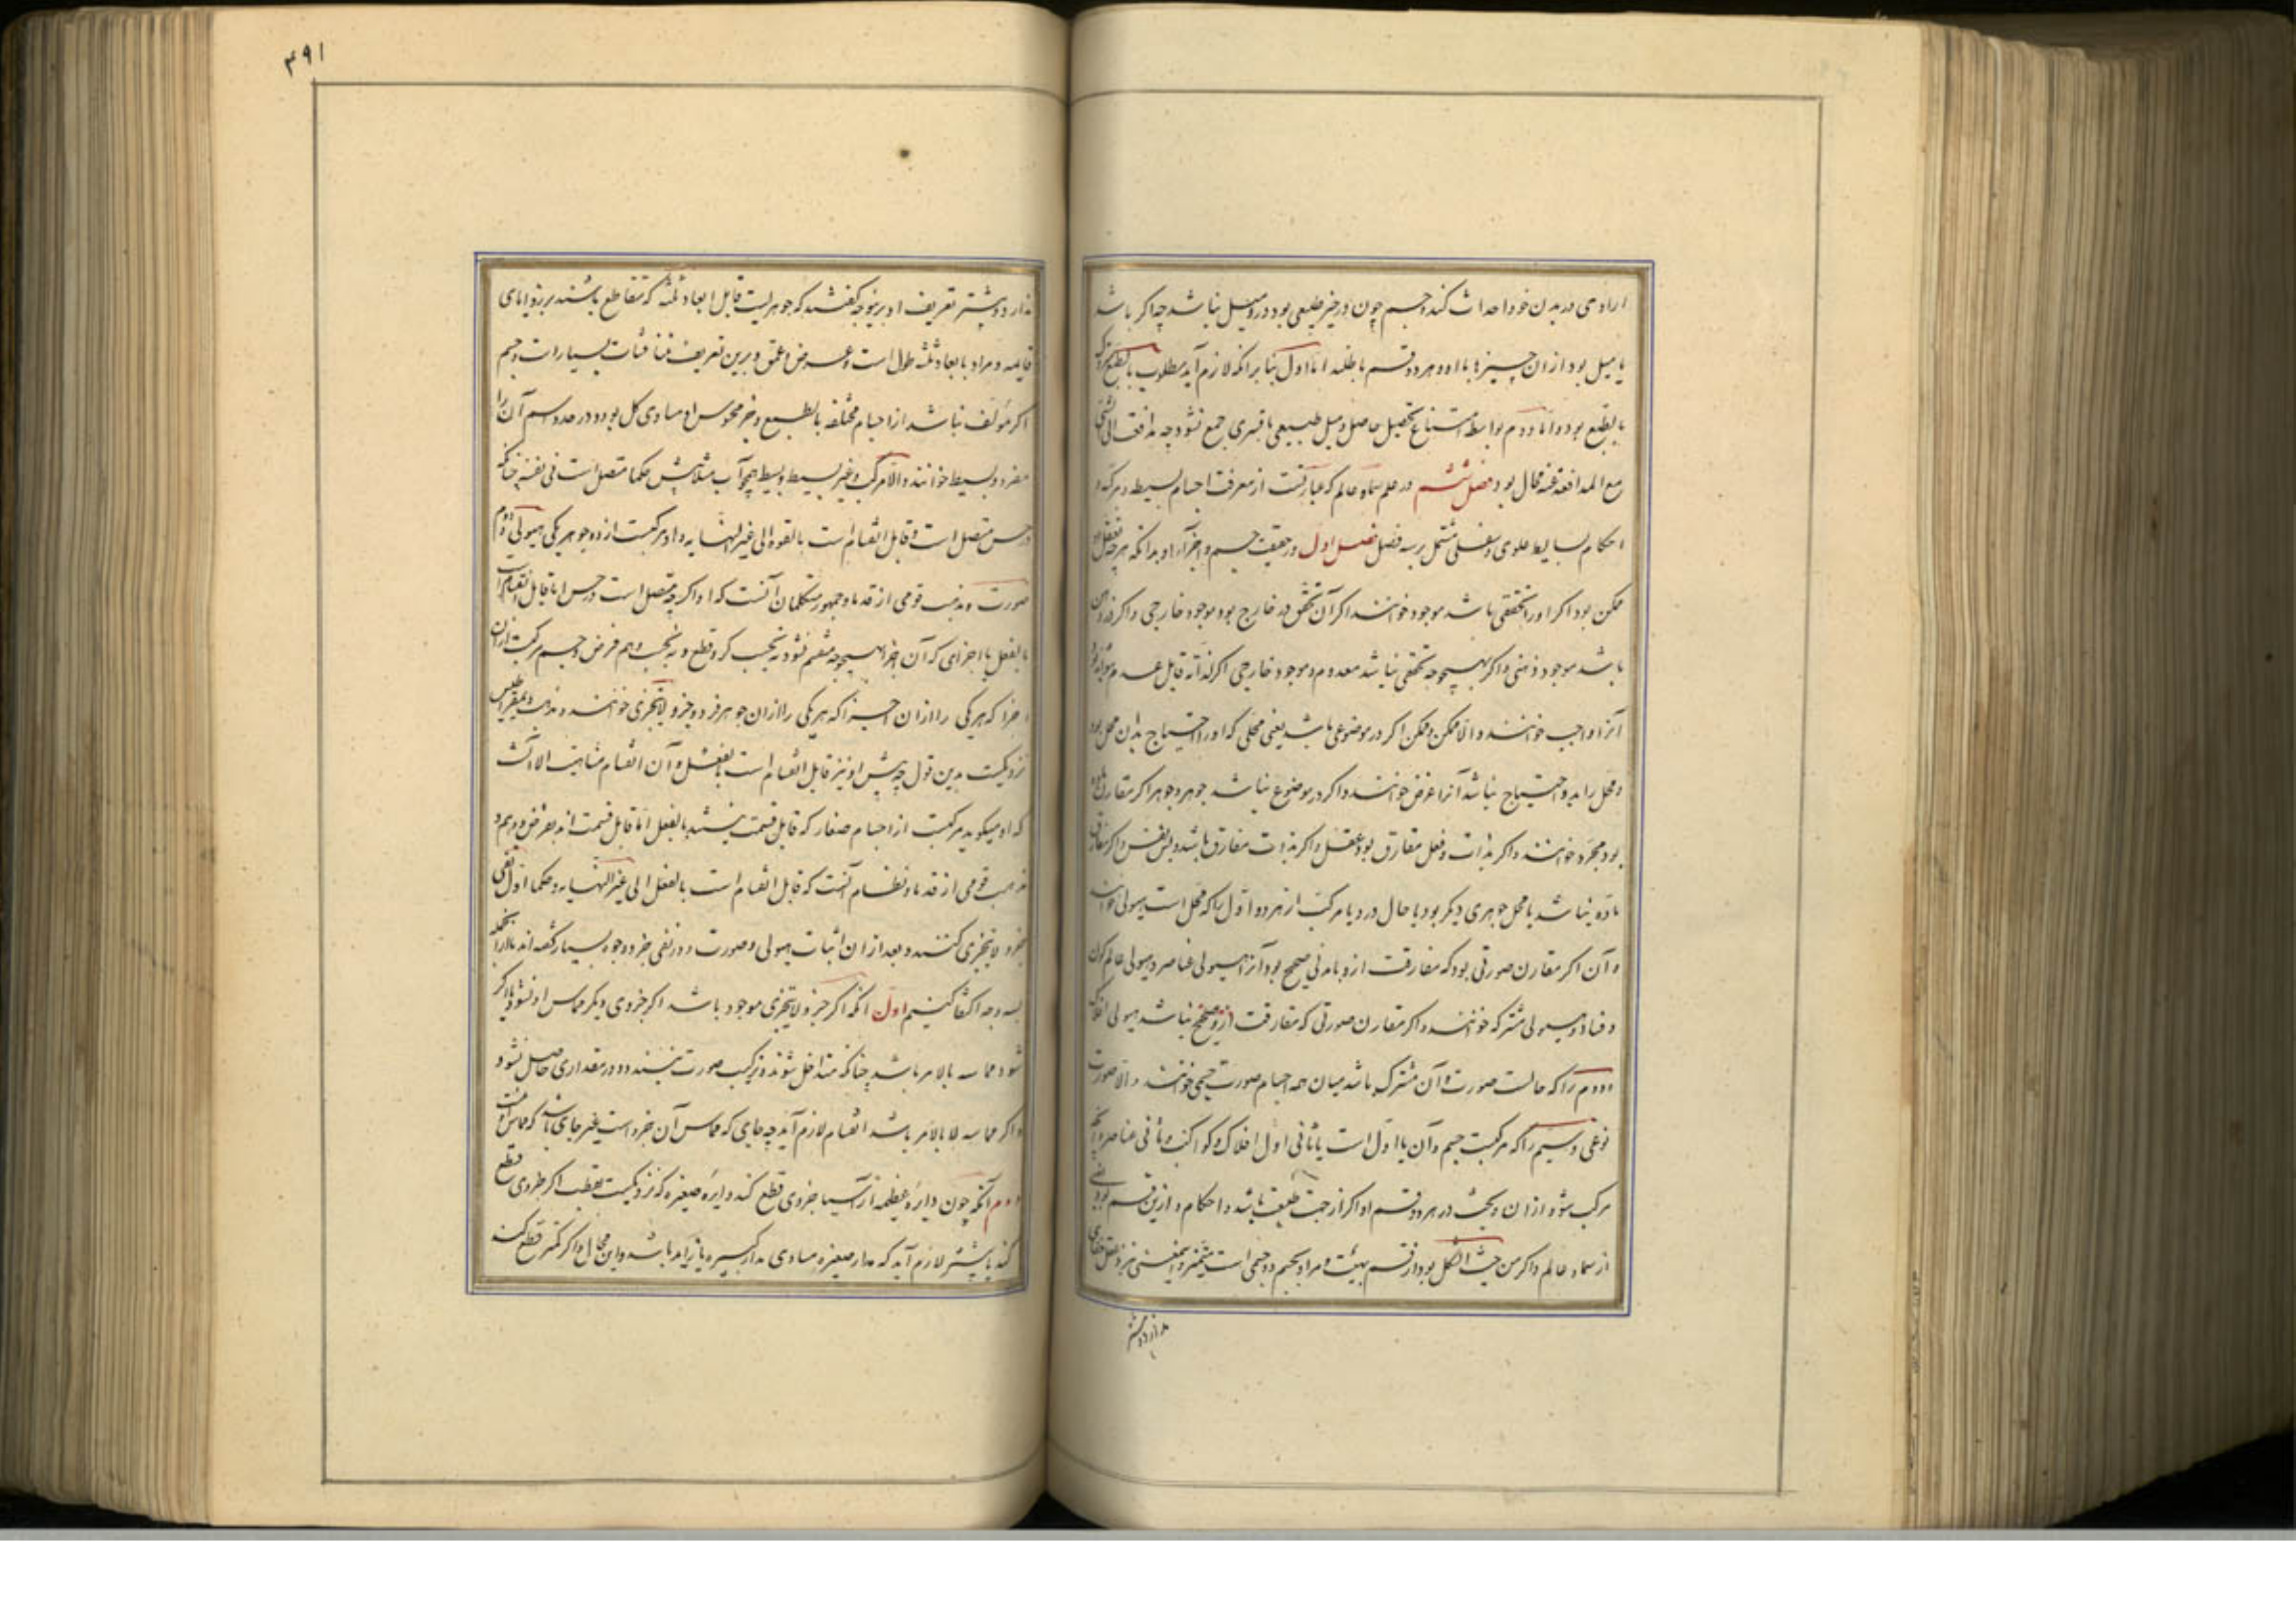 ارادی در بدن خود احداث کند و جسم چون در حیز طبیعی بود در و میل نباشد چه اگر باشد
یا میل بود از ان حیز یا با او و هر دو قسم باطلند اما اول بنابر انکه لازم آید مطلوب بالطبع متروک
بالطبع بود و اما دوم بواسطه امتناع تحصیل حاصل و میل طبیعی با قسری جمع نشود چه مدافعت الی الشی
مع المدافعة عنه محال بود فصل ششم در علم سماء و عالم که عبارتست از معرفت اجسام بسیطه و مرکبه و
احکام بسایط علوی و سفلی مشتمل بر سه فصل فصل اول در حقیقت جسم و اجزای او بدانکه هرچه تعقل او
ممکن بود اگر او را تحققی باشد موجود خوانند اگر آن تحقق در خارج بود موجود خارجی و اگر در ذهن
باشد موجود ذهنی و اگر بهیچوجه تحققی نباشد معدوم و موجود خارجی اگر لذاته قابل عدم نبود
آنرا واجب خوانند و الا ممکن و ممکن اگر در موضوعی باشد یعنی محلی که او را احتیاج بدان محل بود
و محل را بدو احتیاج نباشد آنرا عرض خوانند و اگر در موضوع نباشد جوهر و جوهر اگر مفارق ماده
بود مجرد خوانند و اگر بذات و فعل مفارق بود عقل و اگر بذات مفارق باشد و بس نفس و اگر مفارق
ماده نباشد یا محل جوهری دیگر بود یا حال در و یا مرکب از هر دو اول را که محل است هیولی خوانند
و آن اگر مقارن صورتی بود که مفارقت از و بامدنی صحیح بود آنرا هیولی عناصر و هیولی عالم کون
و فساد و هیولی مشترکه خوانند و اگر مقارن صورتی که مفارقت ازو صحیح نباشد هیولی افلاک
و دوم را که حالست صورت و آن مشترک باشد میان همه اجسام صورت جسمی خوانند و الا صورت
نوعی و سیم را که مرکبست جسم و آن یا اول است یا ثانی اول افلاک و کواکب و ثانی عناصر و آنچه
مرکب شود از ان و بحث در هر دو قسم او اگر از جهت طبیعت باشد و احکام و ازین قسم بود
از سماء و عالم و اگر من حیث الشکل بود از قسم هیئت و مراد بجسم دو جسمی است
ندارد و بیشتر
ندارد و بیشتر تعریف او برینوجه گفتند که جوهریست قابل ابعاد ثلثه که متقاطع باشند بر زوایای
قایمه و مراد بابعاد ثلثه طول است و عرض و عمق و برین تعریف مناقشات بسیارست و جسم
اگر مؤلف نباشد از اجسام مختلفه بالطبع و جزء محسوس او مساوی کل بود در حد و اسم آن را
مفرد و بسیط خوانند و الا مرکب و غیر بسیط و بسیط همچو آب مثلا پیش حکما متصل است فی نفسه چنانکه
در حس متصل است و قابل انقسام است بالقوه الی غیر النهایه و او مرکبست از دو جوهر یکی هیولی دوم
صورت و مذهب قومی از قدما و جمهور متکلمان آنست که او اگرچه متصل است در حس اما قابل انقسام است
بالفعل با اجزای که آن اجزا بهیچوجه منقسم نشود نه بحسب کسر و قطع و نه بحسب وهم و فرض و جسم مرکبست از ان
اجزا که هریکی را از ان اجزا که هریکی را از ان جوهر فرد و جزو لا یتجزی خوانند و مذهب دیمقراطیس
نزدیکست بدین قول چه پیش او نیز قابل انقسام است بالفعل و آن انقسام متناهیست الا آنست
که او میگوید مرکبست از اجسام صغار که قابل قسمت نیستند بالفعل اما قابل قسمت اند بفرض و وهم و
مذهب قومی از قدما و نظام آنست که قابل انقسام است بالفعل الی غیر النهایه و حکما اول نفی
جزو لا یتجزی کنند و بعد از ان اثبات هیولی و صورت و در نفی جزو وجوه بسیار گفته اند ما از انجمله
بسه وجه اکتفا کنیم اول آنکه اگر جزو لا یتجزی موجود باشد اگر جزوی دیگر مماس او نشود یا اگر
شود مماسه بالاسر باشد چنانکه متداخل شوند و ترکیب صورت نبندد و در مقداری حاصل نشود
و اگر مماسه لا بالاسر باشد انقسام لازم آید چه جای که مماس آن جزو است غیر جای باشد که مماس او نیست
دوم آنکه چون دایره عظیمه از آسیا جزوی قطع کند دایره صغیره که نزدیکست بقطب اگر جزوی قطع
کند یا بیشتر لازم آید که مدار صغیره مساوی مدار کبیره یا زاید باشد و این محال و اگر کمتر قطع کند
۴۹۱